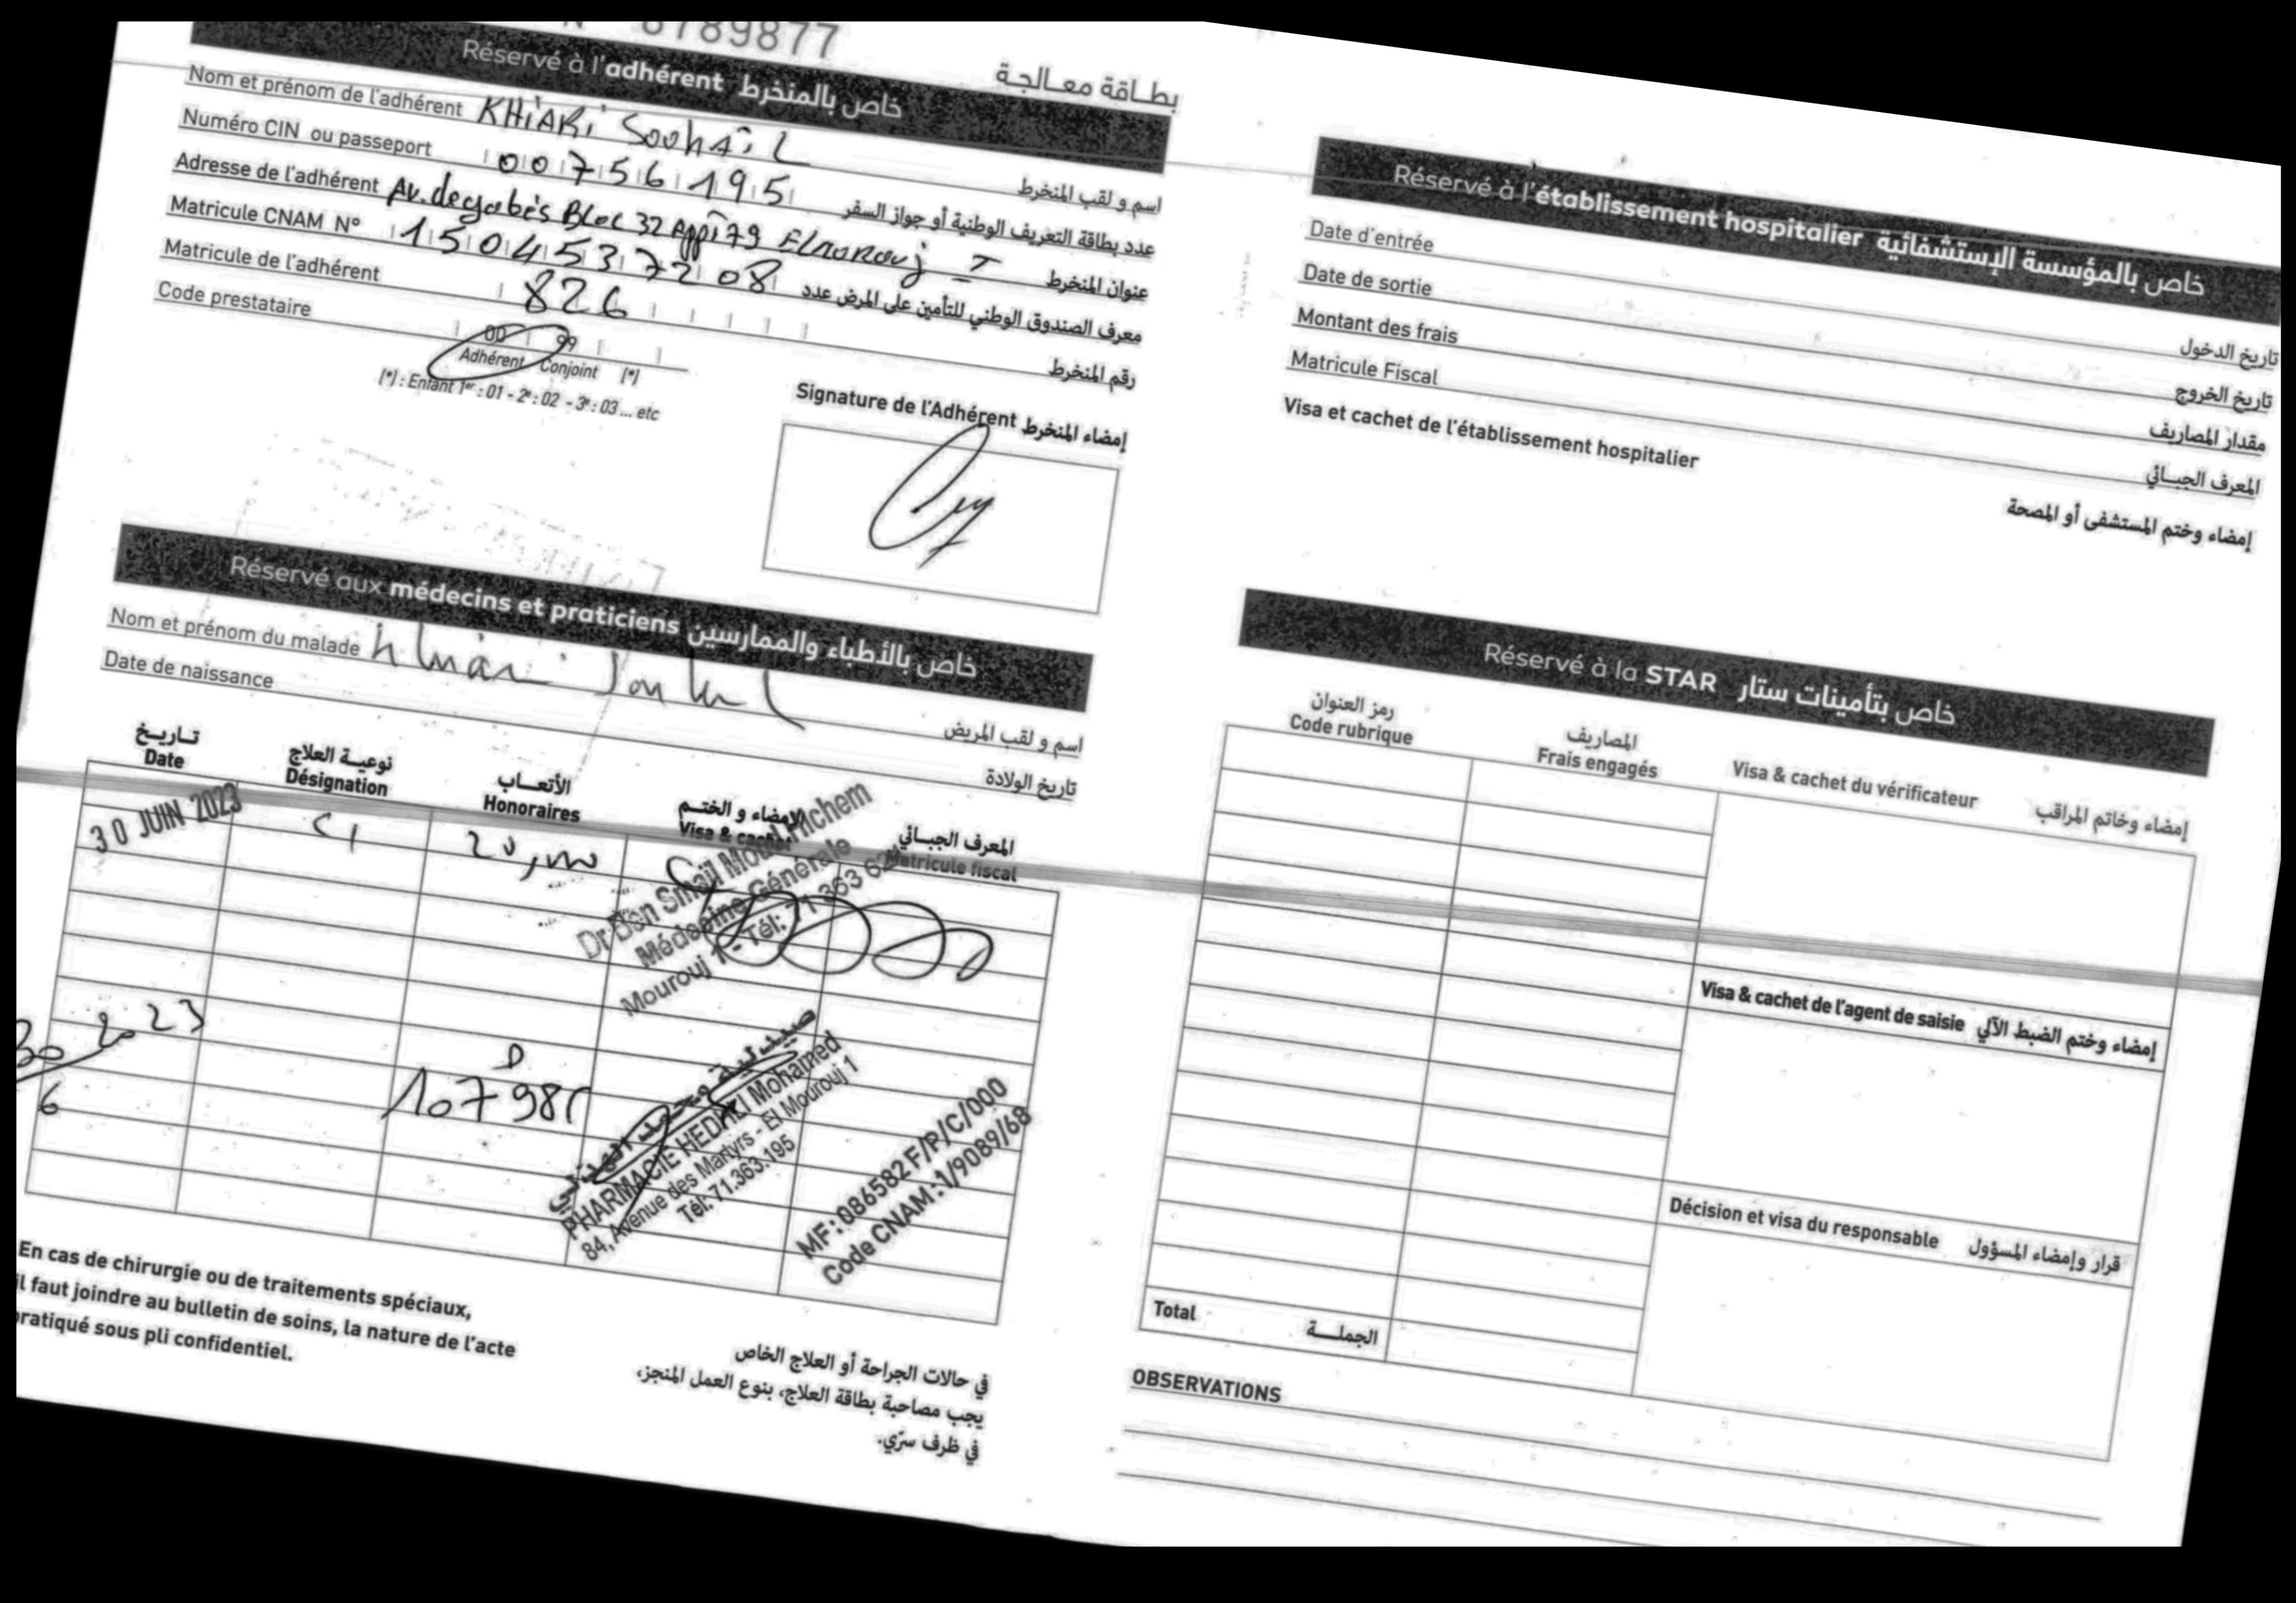 N° 6789877
بطاقة معالجة
Réservé à l'adhérent خاص بالمنخرط
Nom et prénom de l'adhérent KHiARi SOUhAiL اسم و لقب المنخرط
Numéro CIN ou passeport 00756195 عدد بطاقة التعريف الوطنية أو جواز السفر
Adresse de l'adhérent Av. de gabès BLOC 32 App 179 ELMOROUJ I عنوان المنخرط
Matricule CNAM N° 1504537208 معرف الصندوق الوطني للتأمين على المرض عدد
Matricule de l'adhérent 826 رقم المنخرط
Code prestataire 00 99
Adhérent Conjoint (*)
(*) : Enfant 1er : 01 - 2e : 02 - 3e : 03 ... etc
Signature de l'Adhérent إمضاء المنخرط
Réservé aux médecins et praticiens خاص بالأطباء والممارسين
Nom et prénom du malade Khiari Souhail اسم و لقب المريض
Date de naissance تاريخ الولادة
تاريخ نوعية العلاج الأتعاب الإمضاء و الختم المعرف الجبائي
Date Désignation Honoraires Visa & cachet Matricule fiscal
30 JUIN 2023 C1 20,000
Dr Ben Smail Hichem
Médecine Générale
Mourouj 1 - Tél: 71 363
30 2023
6
D
107 98
صيدلية
PHARMACIE HEDHLI Mohamed
84, Avenue des Martyrs - El Mourouj 1
Tél: 71.363.195
MF: 086582 F/P/C/000
Code CNAM: 1/9089/68
En cas de chirurgie ou de traitements spéciaux,
il faut joindre au bulletin de soins, la nature de l'acte
pratiqué sous pli confidentiel.
في حالات الجراحة أو العلاج الخاص
يجب مصاحبة بطاقة العلاج، بنوع العمل المنجز،
في ظرف سرّي.
Réservé à l'établissement hospitalier خاص بالمؤسسة الإستشفائية
Date d'entrée تاريخ الدخول
Date de sortie تاريخ الخروج
Montant des frais مقدار المصاريف
Matricule Fiscal المعرف الجبائي
Visa et cachet de l'établissement hospitalier إمضاء وختم المستشفى أو المصحة
Réservé à la STAR خاص بتأمينات ستار
رمز العنوان المصاريف
Code rubrique Frais engagés Visa & cachet du vérificateur إمضاء وخاتم المراقب
Visa & cachet de l'agent de saisie إمضاء وختم الضبط الآلي
Décision et visa du responsable قرار وإمضاء المسؤول
Total الجملة
OBSERVATIONS